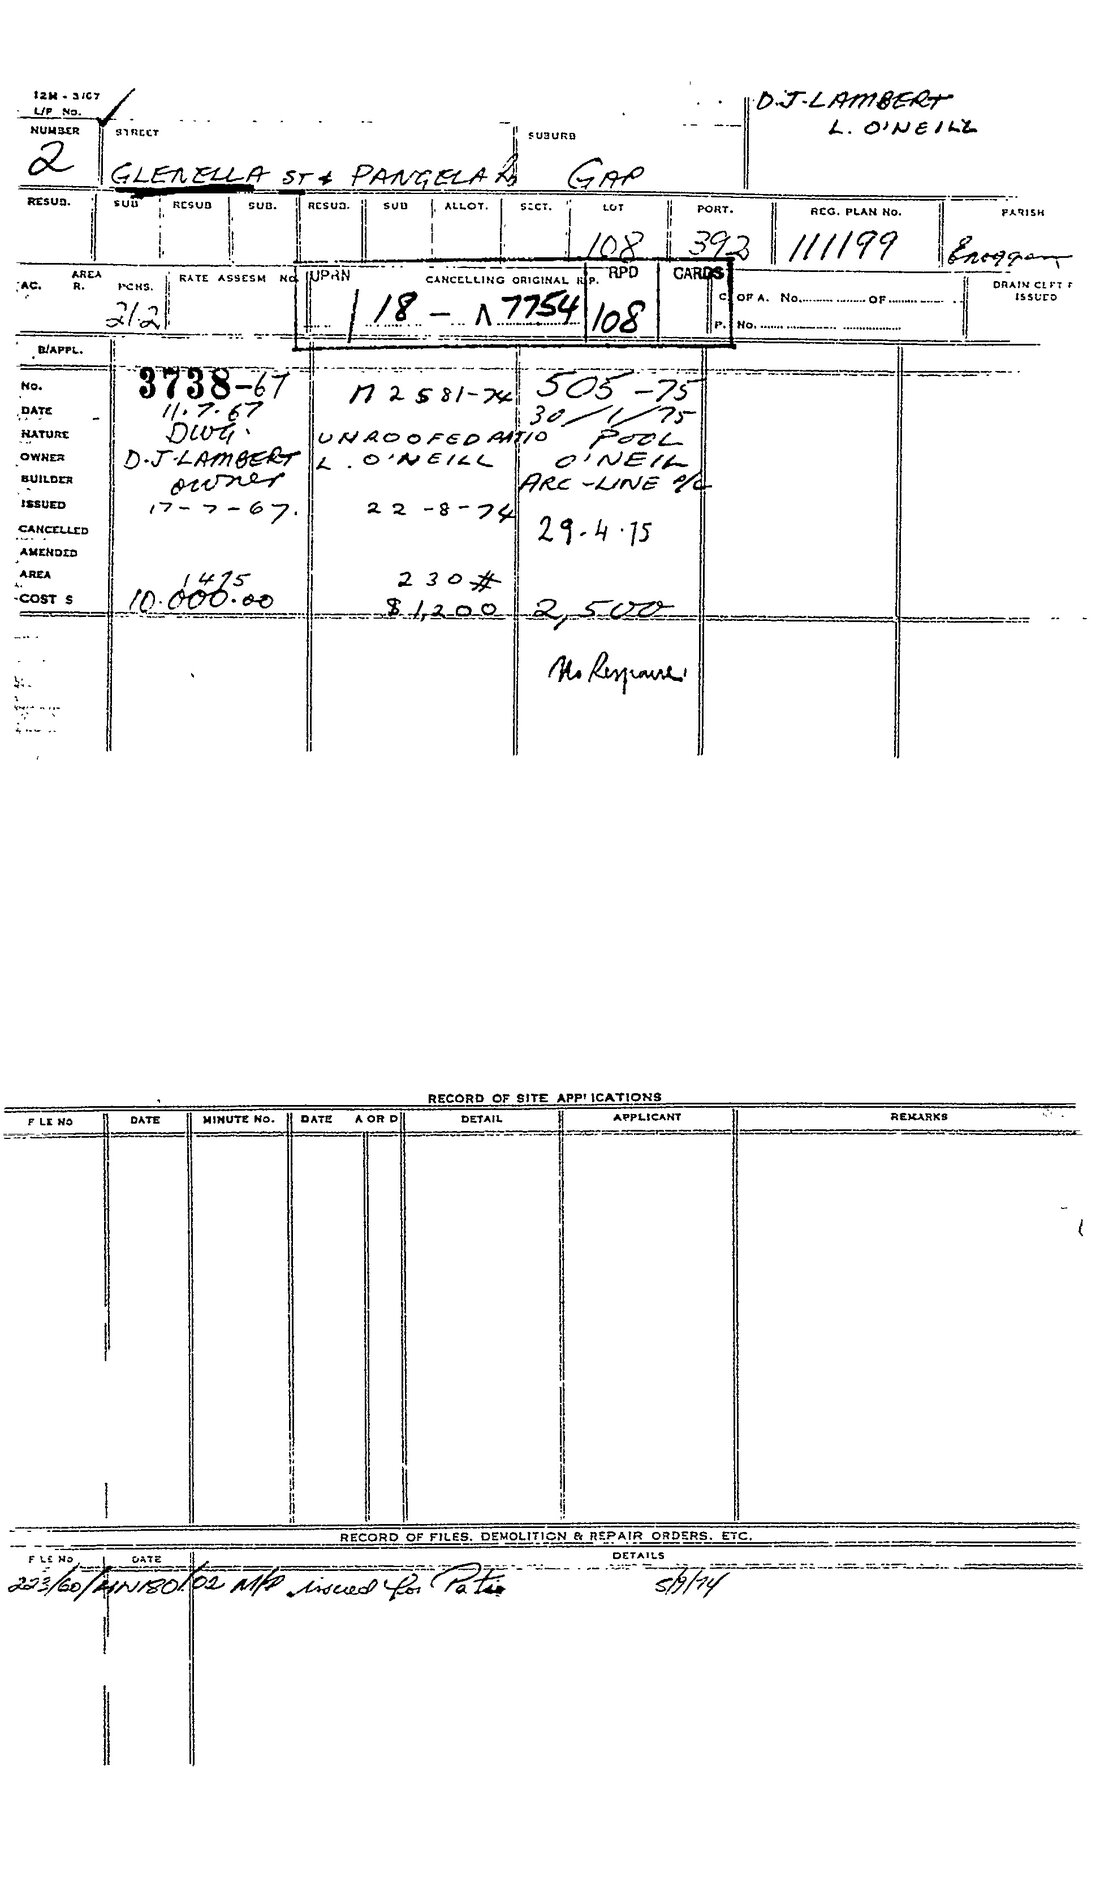 12M - 3/67
L/P No.
D.J. LAMBERT
L. O'NEILL
NUMBER STREET SUBURB
2 GLENELLA ST & PANGELA Rd GAP
RESUB. SUB RESUB SUB. RESUB. SUB ALLOT. SECT. LOT PORT. REG. PLAN No. PARISH
108 392 111199 Enoggera
AREA RATE ASSESM No. UPRN CANCELLING ORIGINAL R.P. RPD CARDS DRAIN CLFT
AC. R. PCHS. C. OF A. No. OF ISSUED
21.2 18 - 7754 108 P. No.
B/APPL.
No. 3738-67 M 2581-74 505-75
DATE 11.7.67 30/1/75
NATURE DWG. UNROOFED PATIO POOL
OWNER D.J. LAMBERT L. O'NEILL O'NEIL
BUILDER owner ARC-LINE P/L
ISSUED 17-7-67. 22-8-74
CANCELLED 29.4.75
AMENDED
AREA 1475 230 #
COST $ 10.000.00 $1,200 2,500
No Response
RECORD OF SITE APPLICATIONS
FILE NO DATE MINUTE No. DATE A OR D DETAIL APPLICANT REMARKS
RECORD OF FILES. DEMOLITION & REPAIR ORDERS. ETC.
FILE NO DATE DETAILS
223/60/ issued for Patio 5/9/74